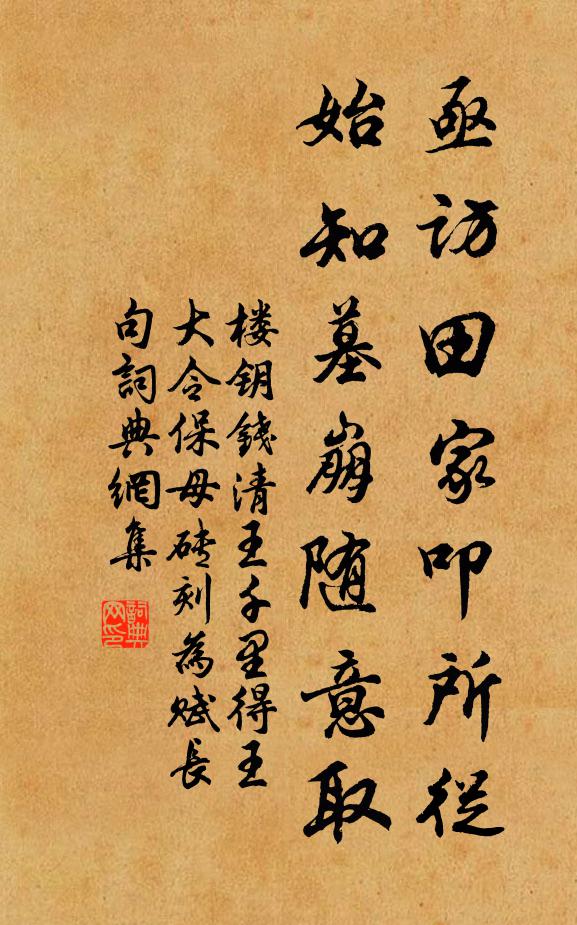 亟访田家叩所從
始知墓崩随意取
楼钥錢清王千里得王
大令保母砖刻為赋長
句詞典網集
詞典网印